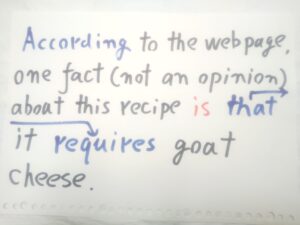 According to the webpage,
one fact (not an opinion)
about this recipe is that
it requires goat
cheese.